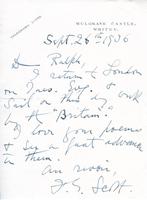 MULGRAVE CASTLE,
WHITBY.
Sept. 26th 1906
Dr Ralph,
I return to London
on Tues. Evg. &
sail on this day
by the "Britain".
I love your poems
& see a great advance
in them.
Au revoir,